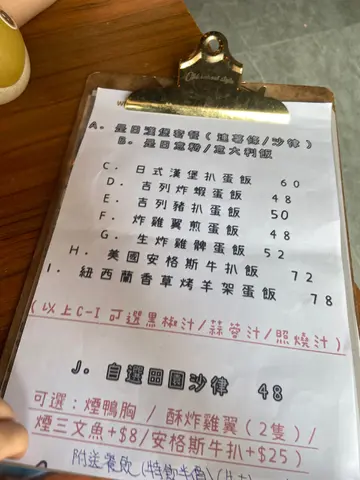 A. 是日漢堡套餐(連薯條/沙律)
B. 是日意粉/意大利飯
C. 日式漢堡扒蛋飯 60
D. 吉列炸蝦蛋飯 48
E. 吉列豬扒蛋飯 50
F. 炸雞翼煎蛋飯 48
G. 生炸雞髀蛋飯 52
H. 美國安格斯牛扒飯 72
I. 紐西蘭香草烤羊架蛋飯 78
(以上C-I可選黑椒汁/蒜蓉汁/照燒汁)
J. 自選田園沙律 48
可選:煙鴨胸 / 酥炸雞翼(2隻)/
煙三文魚+$8/安格斯牛扒+$25)
附送餐飲